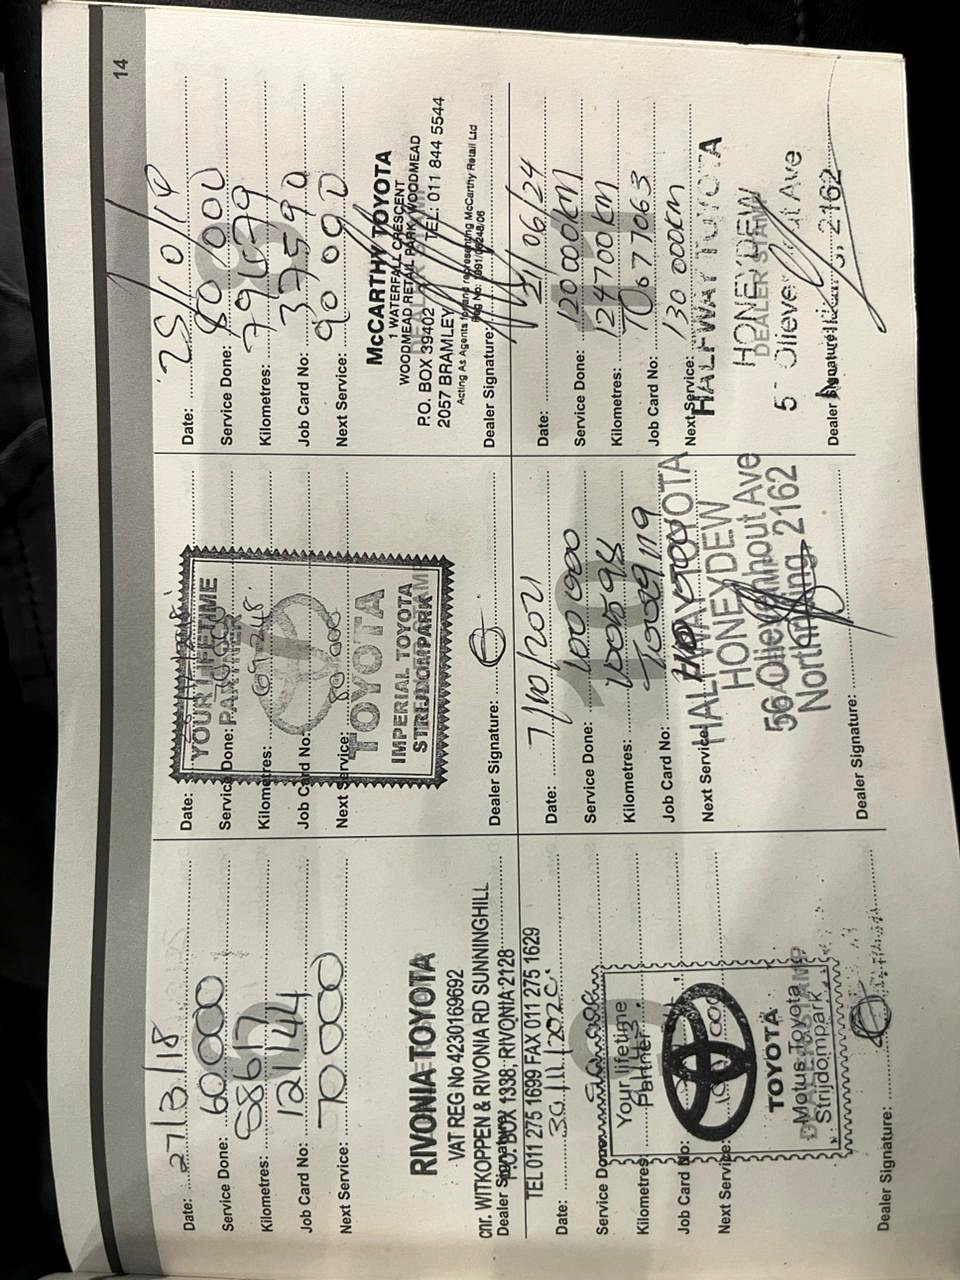 14
Date: 27/3/18
Service Done: 60000
Kilometres: 58617
Job Card No: 121144
Next Service: 70000
RIVONIA TOYOTA
VAT REG No 4230169692
cnr. WITKOPPEN & RIVONIA RD SUNNINGHILL
P.O. BOX 1338, RIVONIA 2128
Dealer Signature:
TEL 011 275 1699 FAX 011 275 1629
Date:
Service Done:
Kilometres: 69248
Job Card No:
Next Service: 80 000
YOUR LIFETIME
PARTNER
TOYOTA
IMPERIAL TOYOTA
STREJDOMPARK
Dealer Signature:
Date: 25/10/19
Service Done: 80 000
Kilometres: 79499
Job Card No: 37590
Next Service: 90 000
McCARTHY TOYOTA
1 WATERFALL CRESCENT
WOODMEAD RETAIL PARK WOODMEAD
P.O. BOX 39402 TEL: 011 844 5544
2057 BRAMLEY
Acting As Agents for and representing McCarthy Retail Ltd
Dealer Signature:
Date: 30/11/2020
Service Done:
Kilometres:
Job Card No:
Next Service: 100 000
Your lifetime
Partner
TOYOTA
Motus Toyota
Strijdompark
DEALER STAMP
Dealer Signature:
Date: 7/10/2021
Service Done: 100 000
Kilometres: 100594
Job Card No:
Next Service:
HALFWAY TOYOTA
HONEYDEW
56 Olievenhout Ave
Northriding, 2162
Dealer Signature:
Date: 21/06/24
Service Done: 120 000KM
Kilometres: 124700KM
Job Card No: T0677063
Next Service: 130 000KM
HALFWAY TOYOTA
HONEYDEW
DEALER STAMP
Ave
2162
Dealer Signature: